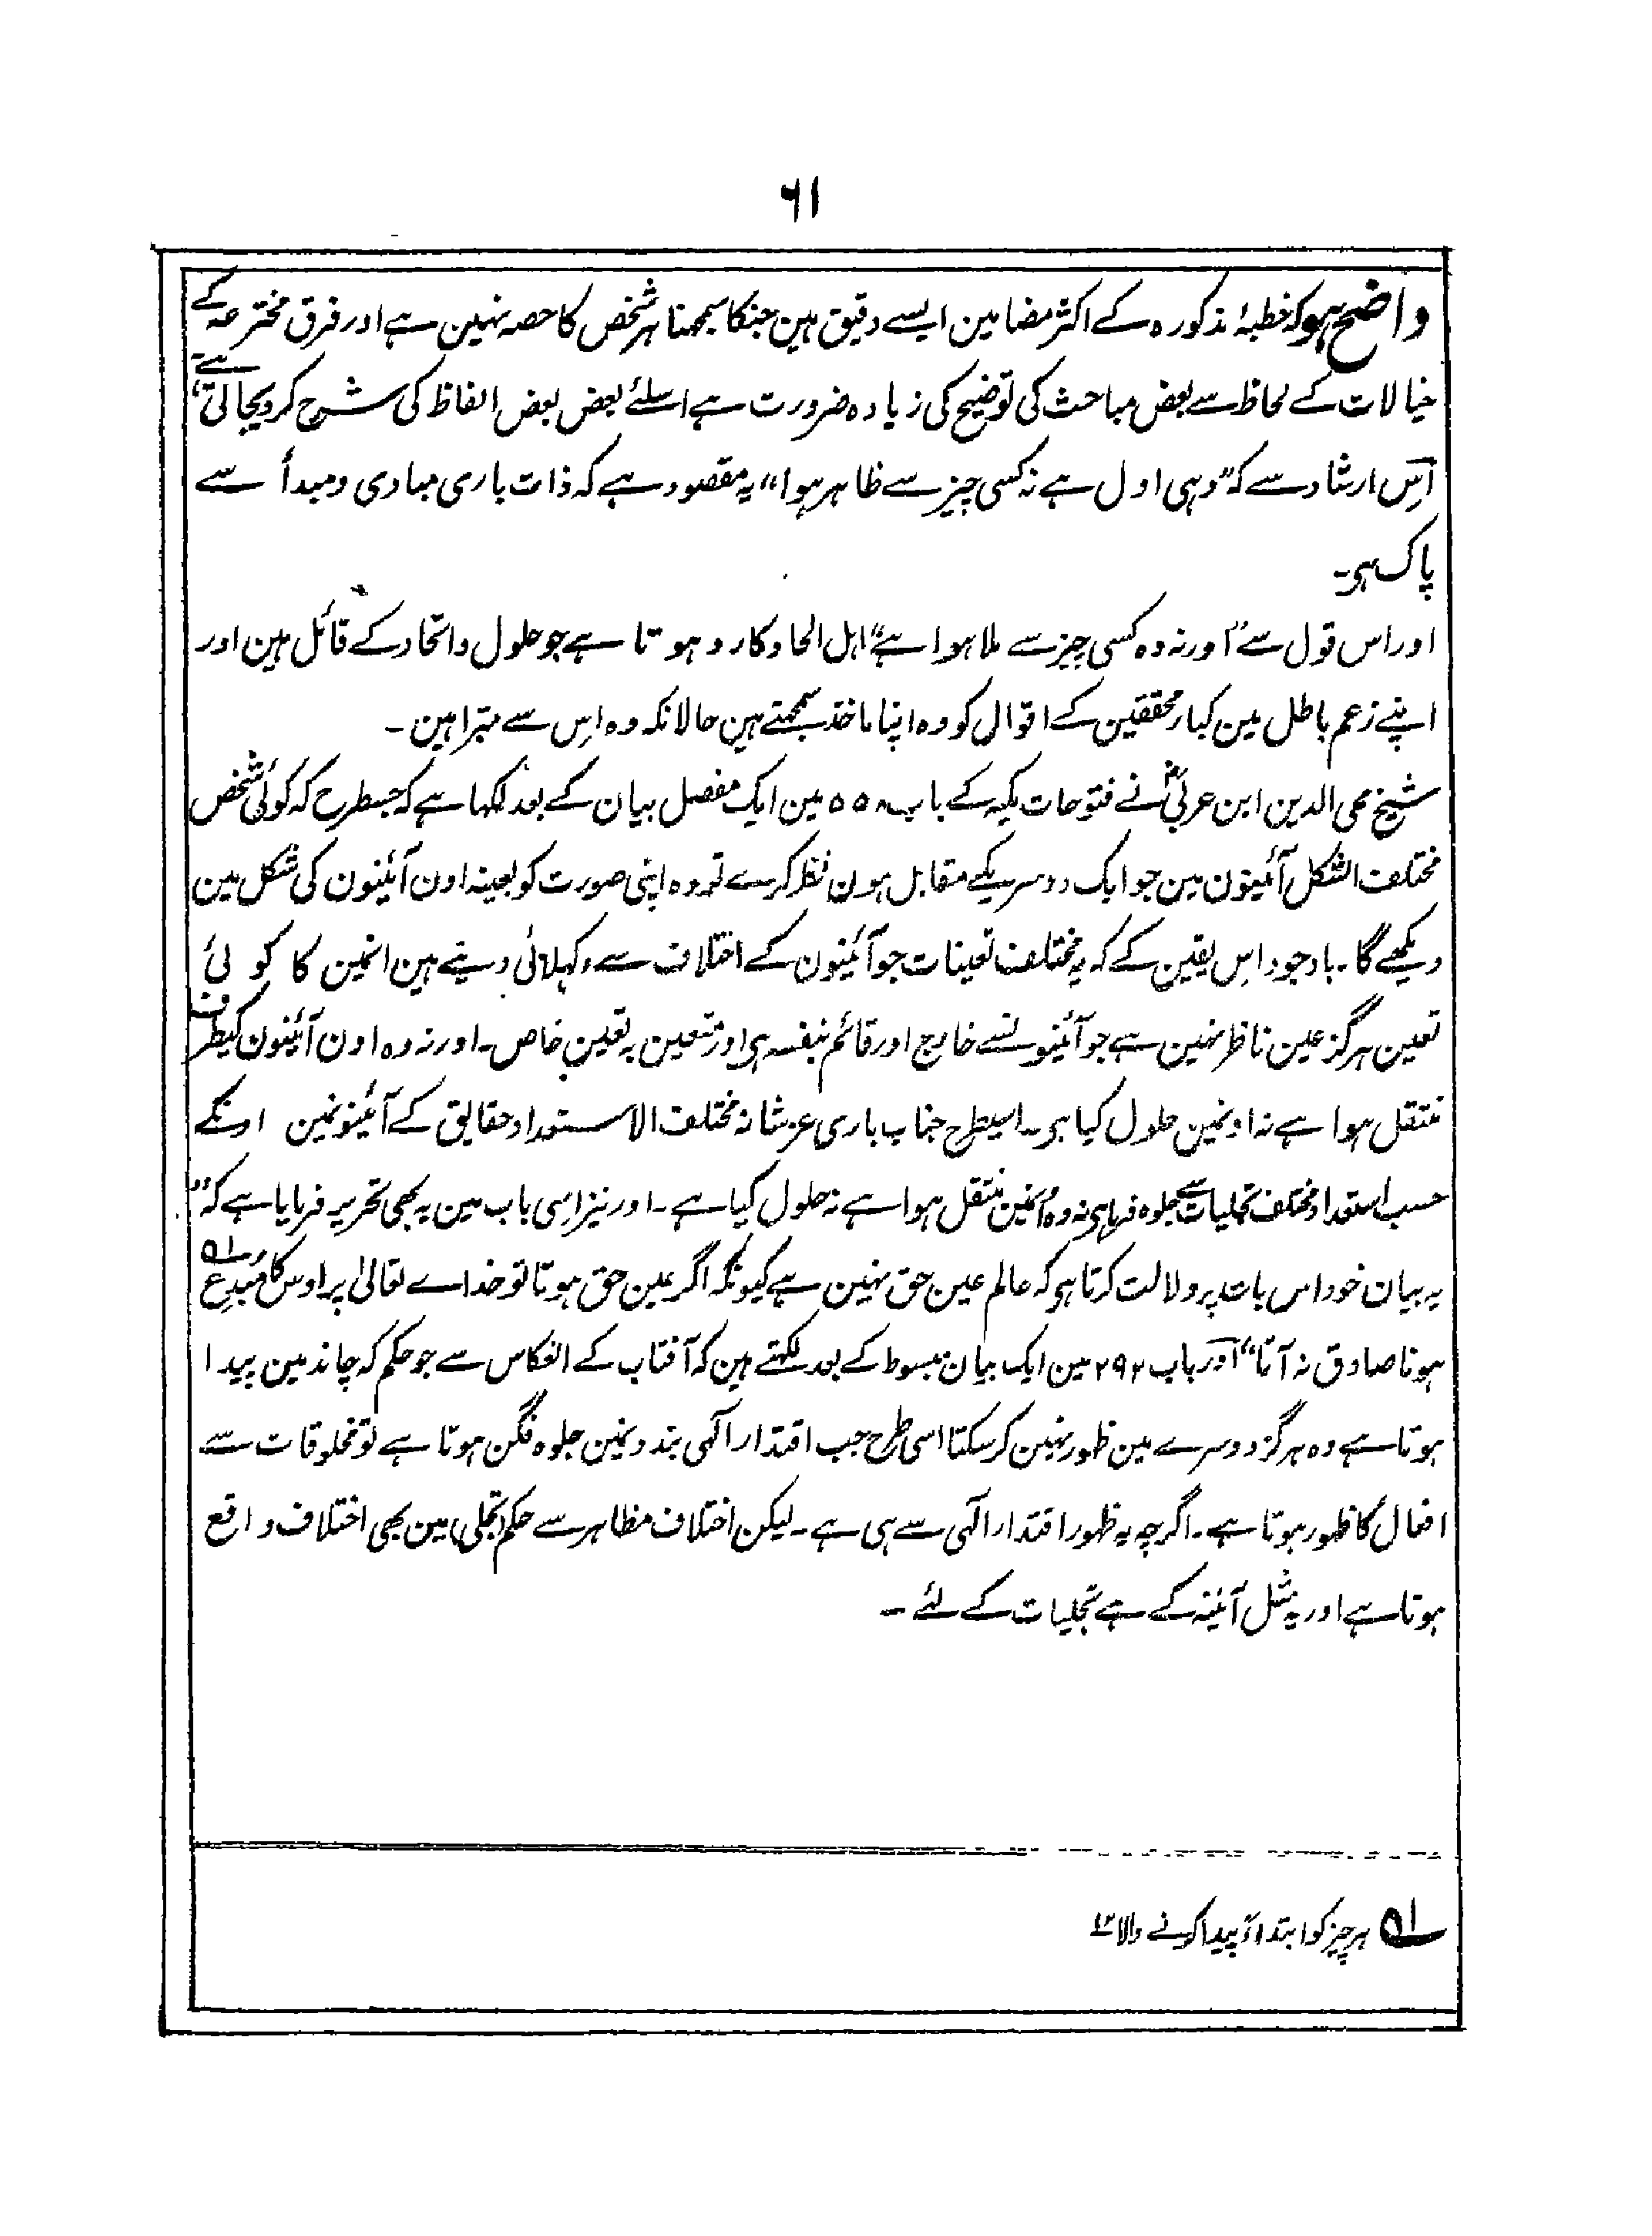 ۶۱
واضح ہو کہ خطبۂ مذکورہ کے اکثر مضامین ایسے دقیق ہین جنکا سمجھنا ہر شخص کا حصہ نہین ہے اور فرق مخترعہ کے
خیالات کے لحاظ سے بعض مباحث کی توضیح کی زیادہ ضرورت ہے اسلئے بعض بعض الفاظ کی شرح کر دیجاتی ہے
اِس ارشاد سے کہ ”وہی اول ہے نہ کسی چیز سے ظاہر ہوا“ یہ مقصود ہے کہ ذات باری مبادی و مبدأ سے
پاک ہی۔
اور اس قول سے ”اور نہ وہ کسی چیز سے ملا ہوا ہے“ اہل الحاد کا رد ہوتا ہے جو حلول و اتحاد کے قائل ہین اور
اپنے زعم باطل مین کبار محققین کے اقوال کو وہ اپنا ماخذ سمجھتے ہین حالانکہ وہ اِس سے مبرّا ہین۔
شیخ محی الدین ابن عربیؒ نے فتوحات مکیہ کے باب ۵۵۸ مین ایک مفصل بیان کے بعد لکھا ہے کہ جسطرح کہ کوئی شخص
مختلف الشکل آئینون مین جو ایک دوسریکے مقابل ہون نظر کرے تو وہ اپنی صورت کو بعینہ اون آئینون کی شکل مین
دیکھے گا۔ باوجود اِس یقین کے کہ یہ مختلف تعینات جو آئینون کے اختلاف سے دکھلائی دیتے ہین انمین کا کوئی
تعین ہرگز عین ناظر نہین ہے جو آئینونسے خارج اور قائم بنفسہ ہی اور متعین بہ تعین خاص۔ اور نہ وہ اون آئینون کیطرف
منتقل ہوا ہے نہ اونمین حلول کیا ہی۔ اسیطرح جناب باری عزشانہ مختلف الاستعداد حقایق کے آئینونمین اونکے
حسب استعداد مختلف تجلیات سے جلوہ فرما ہی نہ وہ اُنمین منتقل ہوا ہے نہ حلول کیا ہے۔ اور نیز اِسی باب مین یہ بھی تحریر فرمایا ہے کہ ”
یہ بیان خود اس بات پر دلالت کرتا ہی کہ عالم عین حق نہین ہے کیونکہ اگر عین حق ہوتا تو خداے تعالیٰ پر اوس کا مبدع ؎۱
ہونا صادق نہ آتا“ اور باب ۲۹۲ مین ایک بیان مبسوط کے بعد لکھتے ہین کہ آفتاب کے انعکاس سے جو حکم کہ چاند مین پیدا
ہوتا ہے وہ ہرگز دوسرے مین ظہور نہین کر سکتا اسی طرح جب اقتدار الٓہی بندونمین جلوہ فگن ہوتا ہے تو مخلوقات سے
افعال کا ظہور ہوتا ہے۔ اگرچہ یہ ظہور اقتدار الٓہی سے ہی ہے۔ لیکن اختلاف مظاہر سے حکم (تجلی) مین بھی اختلاف واقع
ہوتا ہے اور یہ مثل آئینہ کے ہے تجلیات کے لئے۔
؎۱ ہر چیز کو ابتداءً پیدا کرنے والا ۱۲